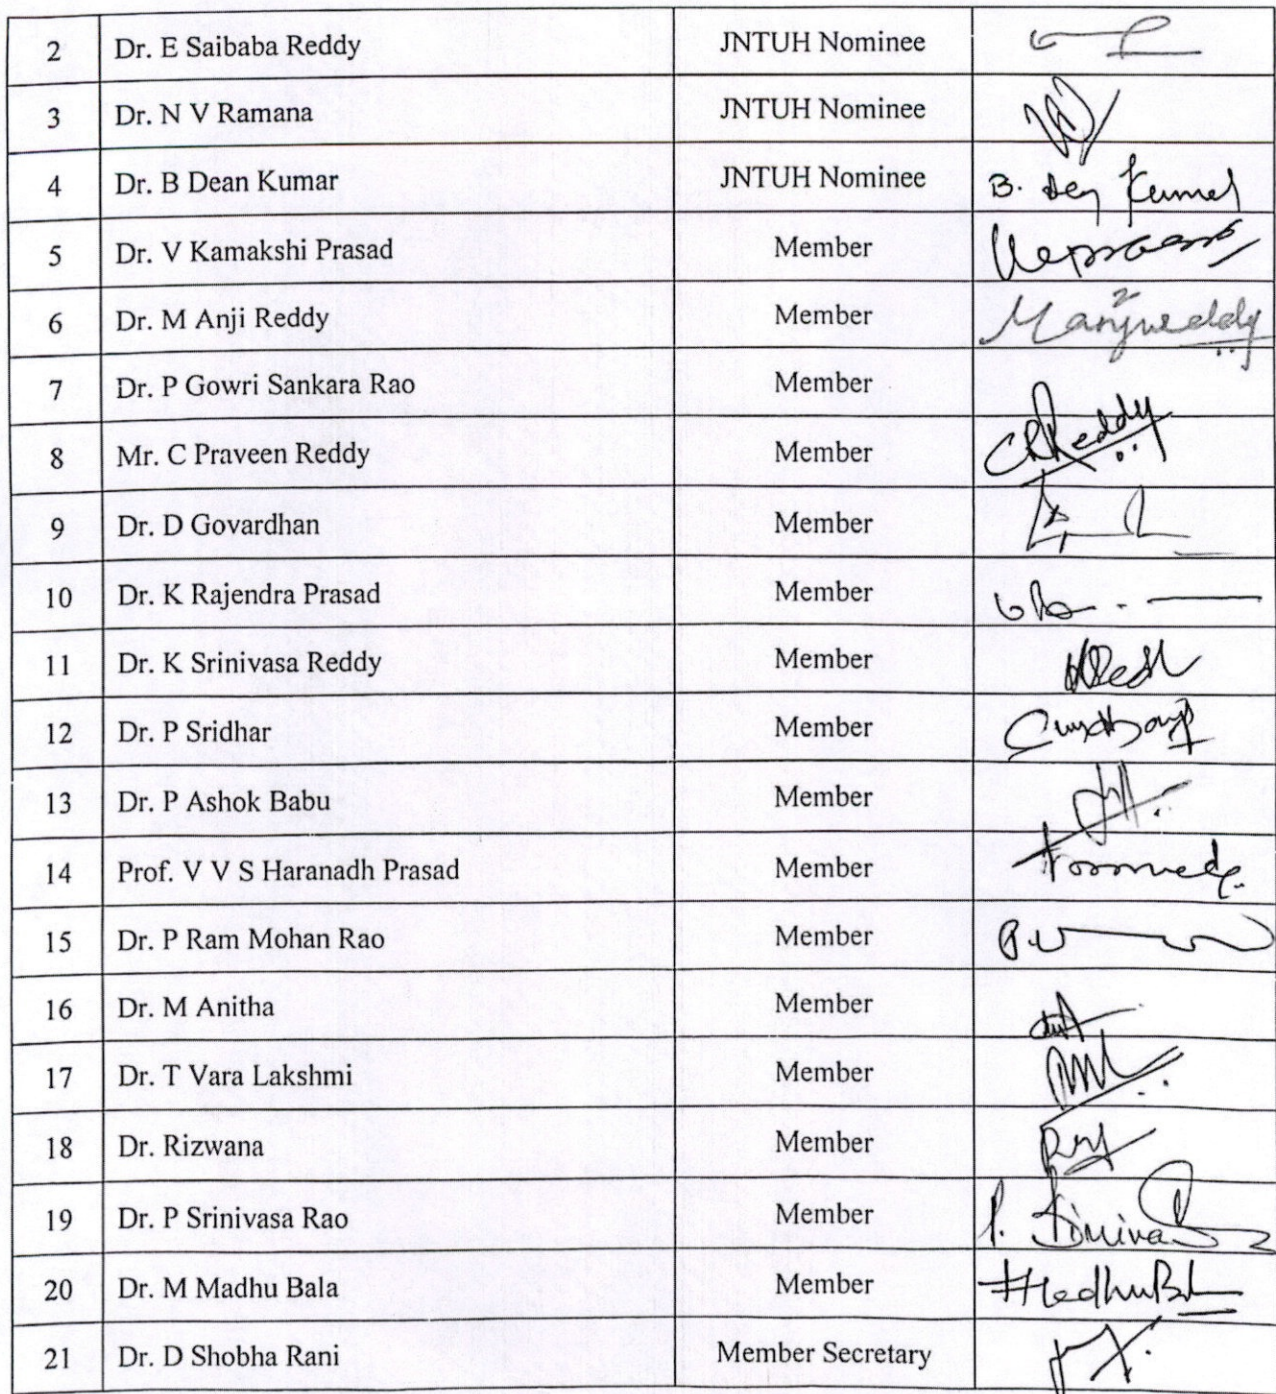 2 Dr. E Saibaba Reddy JNTUH Nominee
3 Dr. N V Ramana JNTUH Nominee
4 Dr. B Dean Kumar JNTUH Nominee B. Dean Kumar
5 Dr. V Kamakshi Prasad Member
6 Dr. M Anji Reddy Member Manjireddy
7 Dr. P Gowri Sankara Rao Member
8 Mr. C Praveen Reddy Member CPReddy
9 Dr. D Govardhan Member
10 Dr. K Rajendra Prasad Member
11 Dr. K Srinivasa Reddy Member
12 Dr. P Sridhar Member
13 Dr. P Ashok Babu Member
14 Prof. V V S Haranadh Prasad Member
15 Dr. P Ram Mohan Rao Member
16 Dr. M Anitha Member
17 Dr. T Vara Lakshmi Member
18 Dr. Rizwana Member
19 Dr. P Srinivasa Rao Member P. Srinivas
20 Dr. M Madhu Bala Member
21 Dr. D Shobha Rani Member Secretary